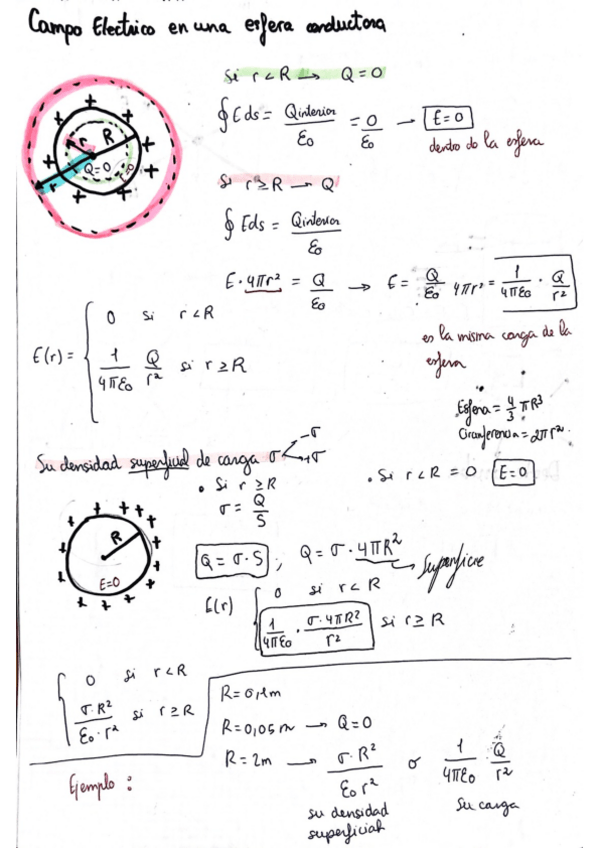 Campo Electrico en una esfera conductora
Si r < R → Q = 0
∮ E ds = Qinterior / ε0 = 0 / ε0 → E = 0
dentro de la esfera
R
r
Q = 0
r
Si r ≥ R → Q
∮ E ds = Qinterior / ε0
E · 4πr² = Q / ε0 → E = Q / ε0 4πr² = 1 / 4πε0 · Q / r²
es la misma carga de la
esfera
E(r) = { 0 si r < R
1 / 4πε0 Q / r² si r ≥ R
Esfera = 4/3 πR³
Circunferencia = 2πr²
Su densidad superficial de carga σ -σ +σ
• Si r ≥ R
σ = Q / S
• Si r < R = 0 E = 0
R
E = 0
Q = σ · S ; Q = σ · 4πR² → Superficie
E(r) { 0 si r < R
1 / 4πε0 · σ · 4πR² / r² si r ≥ R
{ 0 si r < R
σ · R² / ε0 · r² si r ≥ R
Ejemplo :
R = 0,1m
R = 0,05 m → Q = 0
R = 2m → σ · R² / ε0 r² o 1 / 4πε0 Q / r²
su densidad
superficial
Su carga